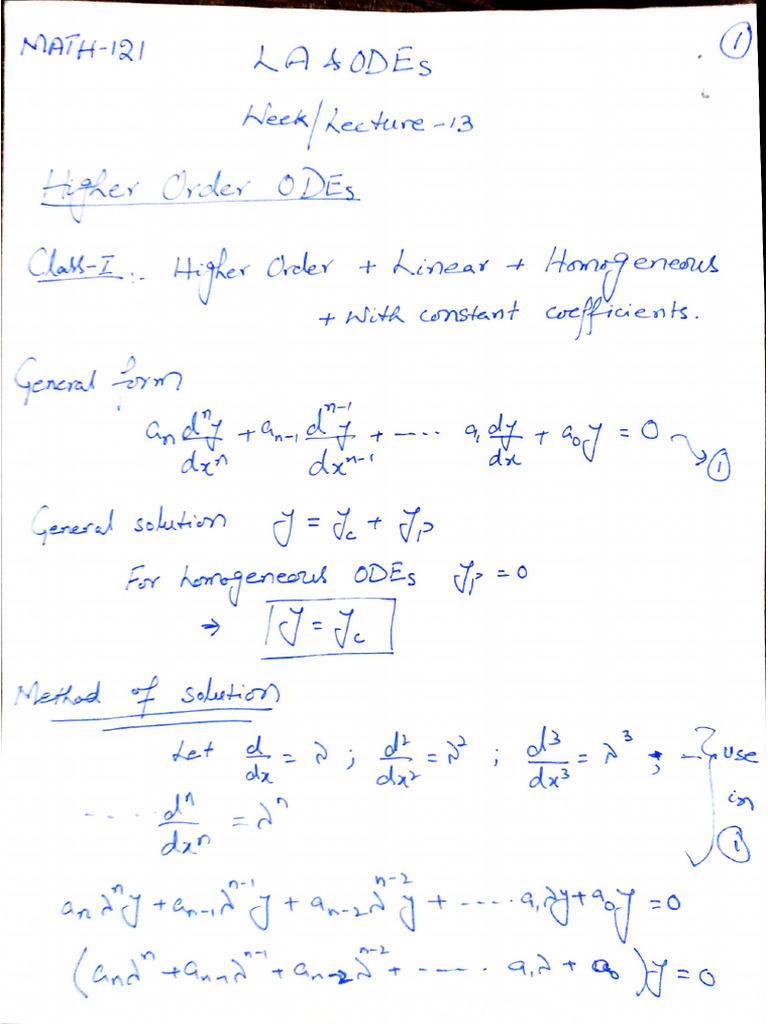 MATH-121
①
LA & ODEs
Week/Lecture-13
Higher Order ODEs
Class-I:- Higher Order + Linear + Homogeneous
+ With constant coefficients.
General form
aₙ dⁿy/dxⁿ + aₙ₋₁ dⁿ⁻¹y/dxⁿ⁻¹ + ---- a₁ dy/dx + a₀y = 0 → ①
General solution y = y_c + y_p
For homogeneous ODEs y_p = 0
→ y = y_c
Method of solution
Let d/dx = λ ; d²/dx² = λ² ; d³/dx³ = λ³ ; -- } use
.... dⁿ/dxⁿ = λⁿ in
①
aₙλⁿy + aₙ₋₁λⁿ⁻¹y + aₙ₋₂λⁿ⁻²y + ---- a₁λy + a₀y = 0
(aₙλⁿ + aₙ₋₁λⁿ⁻¹ + aₙ₋₂λⁿ⁻² + ---- a₁λ + a₀)y = 0